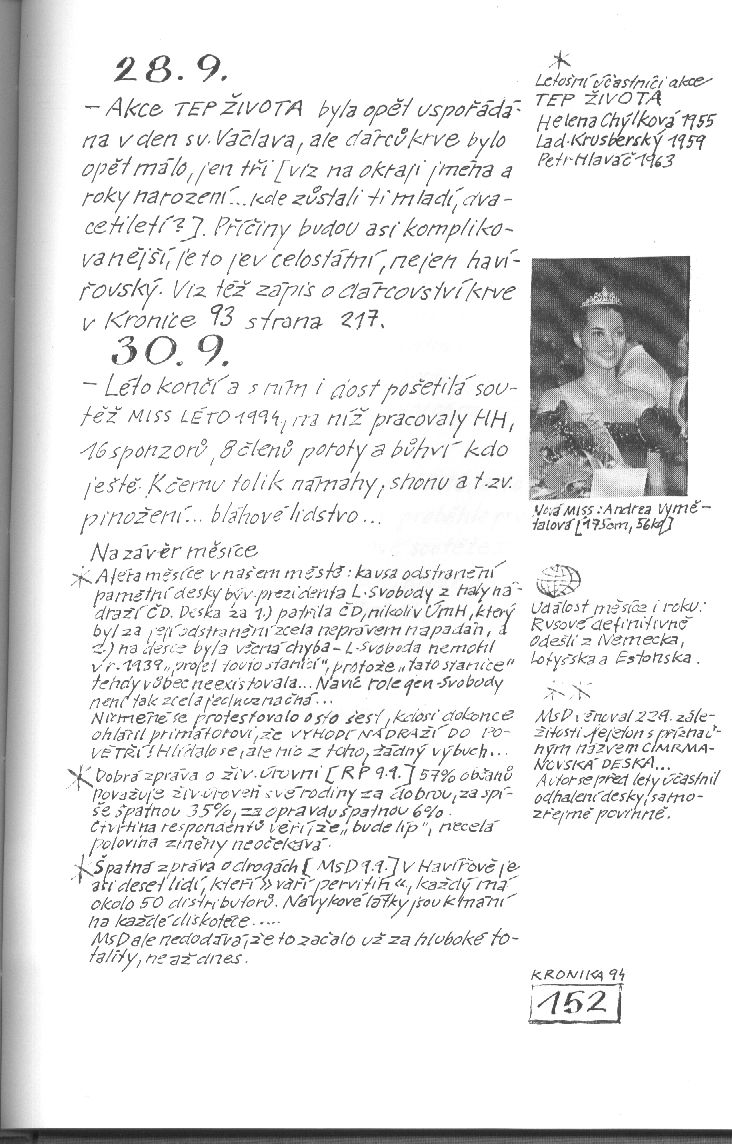 28.9.
– Akce TEP ŽIVOTA byla opět uspořádá-
na v den sv. Václava, ale dárců krve bylo
opět málo, jen tři [viz na okraji jména a
roky narození... kde zůstali ti mladí, dva-
cetiletí?]. Příčiny budou asi kompliko-
vanější, je to jev celostátní, nejen haví-
řovský. Viz též zápis o dárcovství krve
v Kronice 93 strana 217.
30.9.
– Léto končí a s ním i dost pošetilá sou-
těž MISS LÉTO 1994, na níž pracovaly HH,
16 sponzorů, 8 členů poroty a bůhví kdo
ještě. K čemu tolik námahy, shonu a t.zv.
pinožení... bláhové lidstvo...
Na závěr měsíce
* Aféra měsíce v našem městě: kausa odstranění
pamětní desky býv. prezidenta L. Svobody z haly ná-
draží ČD. Deska za 1.) patřila ČD, nikoliv ÚmH, který
byl za její odstranění zcela neprávem napadán, a
2.) na desce byla věcná chyba – L. Svoboda nemohl
v r. 1939 „projet touto stanicí", protože „tato stanice"
tehdy vůbec neexistovala... Navíc role gen. Svobody
není tak zcela jednoznačná...
Nicméně se protestovalo o sto šest, kdosi dokonce
ohlásil primátorovi, že VYHODÍ NÁDRAŽÍ DO PO-
VĚTŘÍ! Hlídalo se, ale nic z toho, žádný výbuch...
* Dobrá zpráva o živ. úrovni [RP 9.9.] 57% občanů
považuje živ. úroveň své rodiny za dobrou, za spí-
še špatnou 35%, za opravdu špatnou 6%.
Čtvrtina respondentů věří, že „bude líp", necelá
polovina změny neočekává.
* Špatná zpráva o drogách [MsD 9.9.] V Havířově je
asi deset lidí, kteří »vaří pervitin«, každý má
okolo 50 distributorů. Návykové látky jsou k mání
na každé diskotéce.....
MsD ale nedodává, že to začalo už za hluboké to-
tality, ne až dnes.
*
Letošní účastníci akce
TEP ŽIVOTA
Helena Chýlková 1955
Lad. Krusberský 1959
Petr Hlaváč 1963
Nová Miss: Andrea Vymě-
talová [175cm, 56kg]
Událost měsíce i roku:
Rusové definitivně
odešli z Německa,
Lotyšska a Estonska.
* *
MsD věnoval 22.9. zále-
žitosti fejeton s příznač-
ným názvem CIMRMA-
NOVSKÁ DESKA...
Autor se před lety účastnil
odhalení desky, samo-
zřejmě povinně.
KRONIKA 94
152